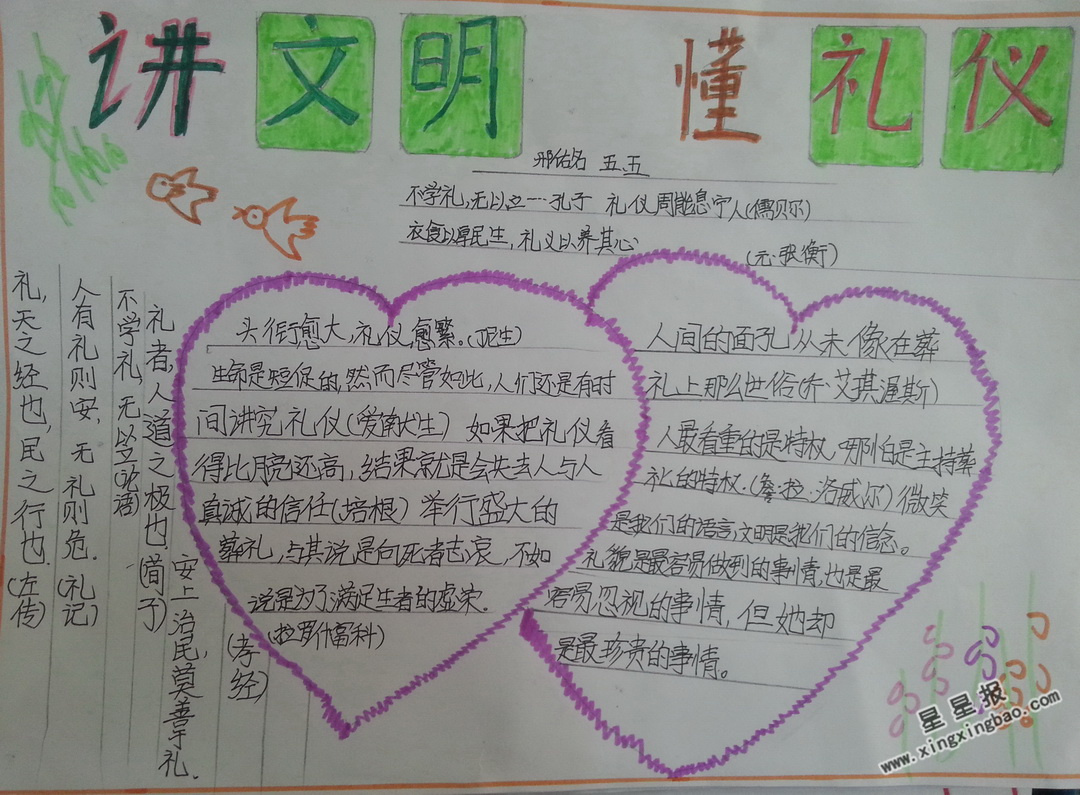 讲文明 懂礼仪
邢佑名 五.五
不学礼,无以立…孔子 礼仪周能息宁人(儒贝尔)
衣食以厚民生,礼义以养其心
(元·张衡)
礼,天之经也,民之行也.(左传)
人有礼则安,无礼则危.(礼记)
不学礼,无以立(论语)
礼者,人道之极也(荀子)
安上治民,莫善于礼.
(孝经)
头衔愈大,礼仪愈繁。(丁尼生)
生命是短促的,然而尽管如此,人们还是有时
间讲究礼仪(爱献生) 如果把礼仪看
得比月亮还高,结果就是会失去人与人
真诚的信任(培根) 举行盛大的
葬礼,与其说是向死者志哀,不如
说是为了满足生者的虚荣.
(拉罗什富科)
人间的面孔从未像在葬
礼上那么世俗(乔·艾琪渥斯)
人最看重的是特权,哪怕是主持葬
礼的特权.(詹·拉·洛威尔) 微笑
是我们的语言,文明是我们的信念。
礼貌是最容易做到的事情,也是最
容易忽视的事情,但她却
是最珍贵的事情。
星星报
www.xingxingbao.com